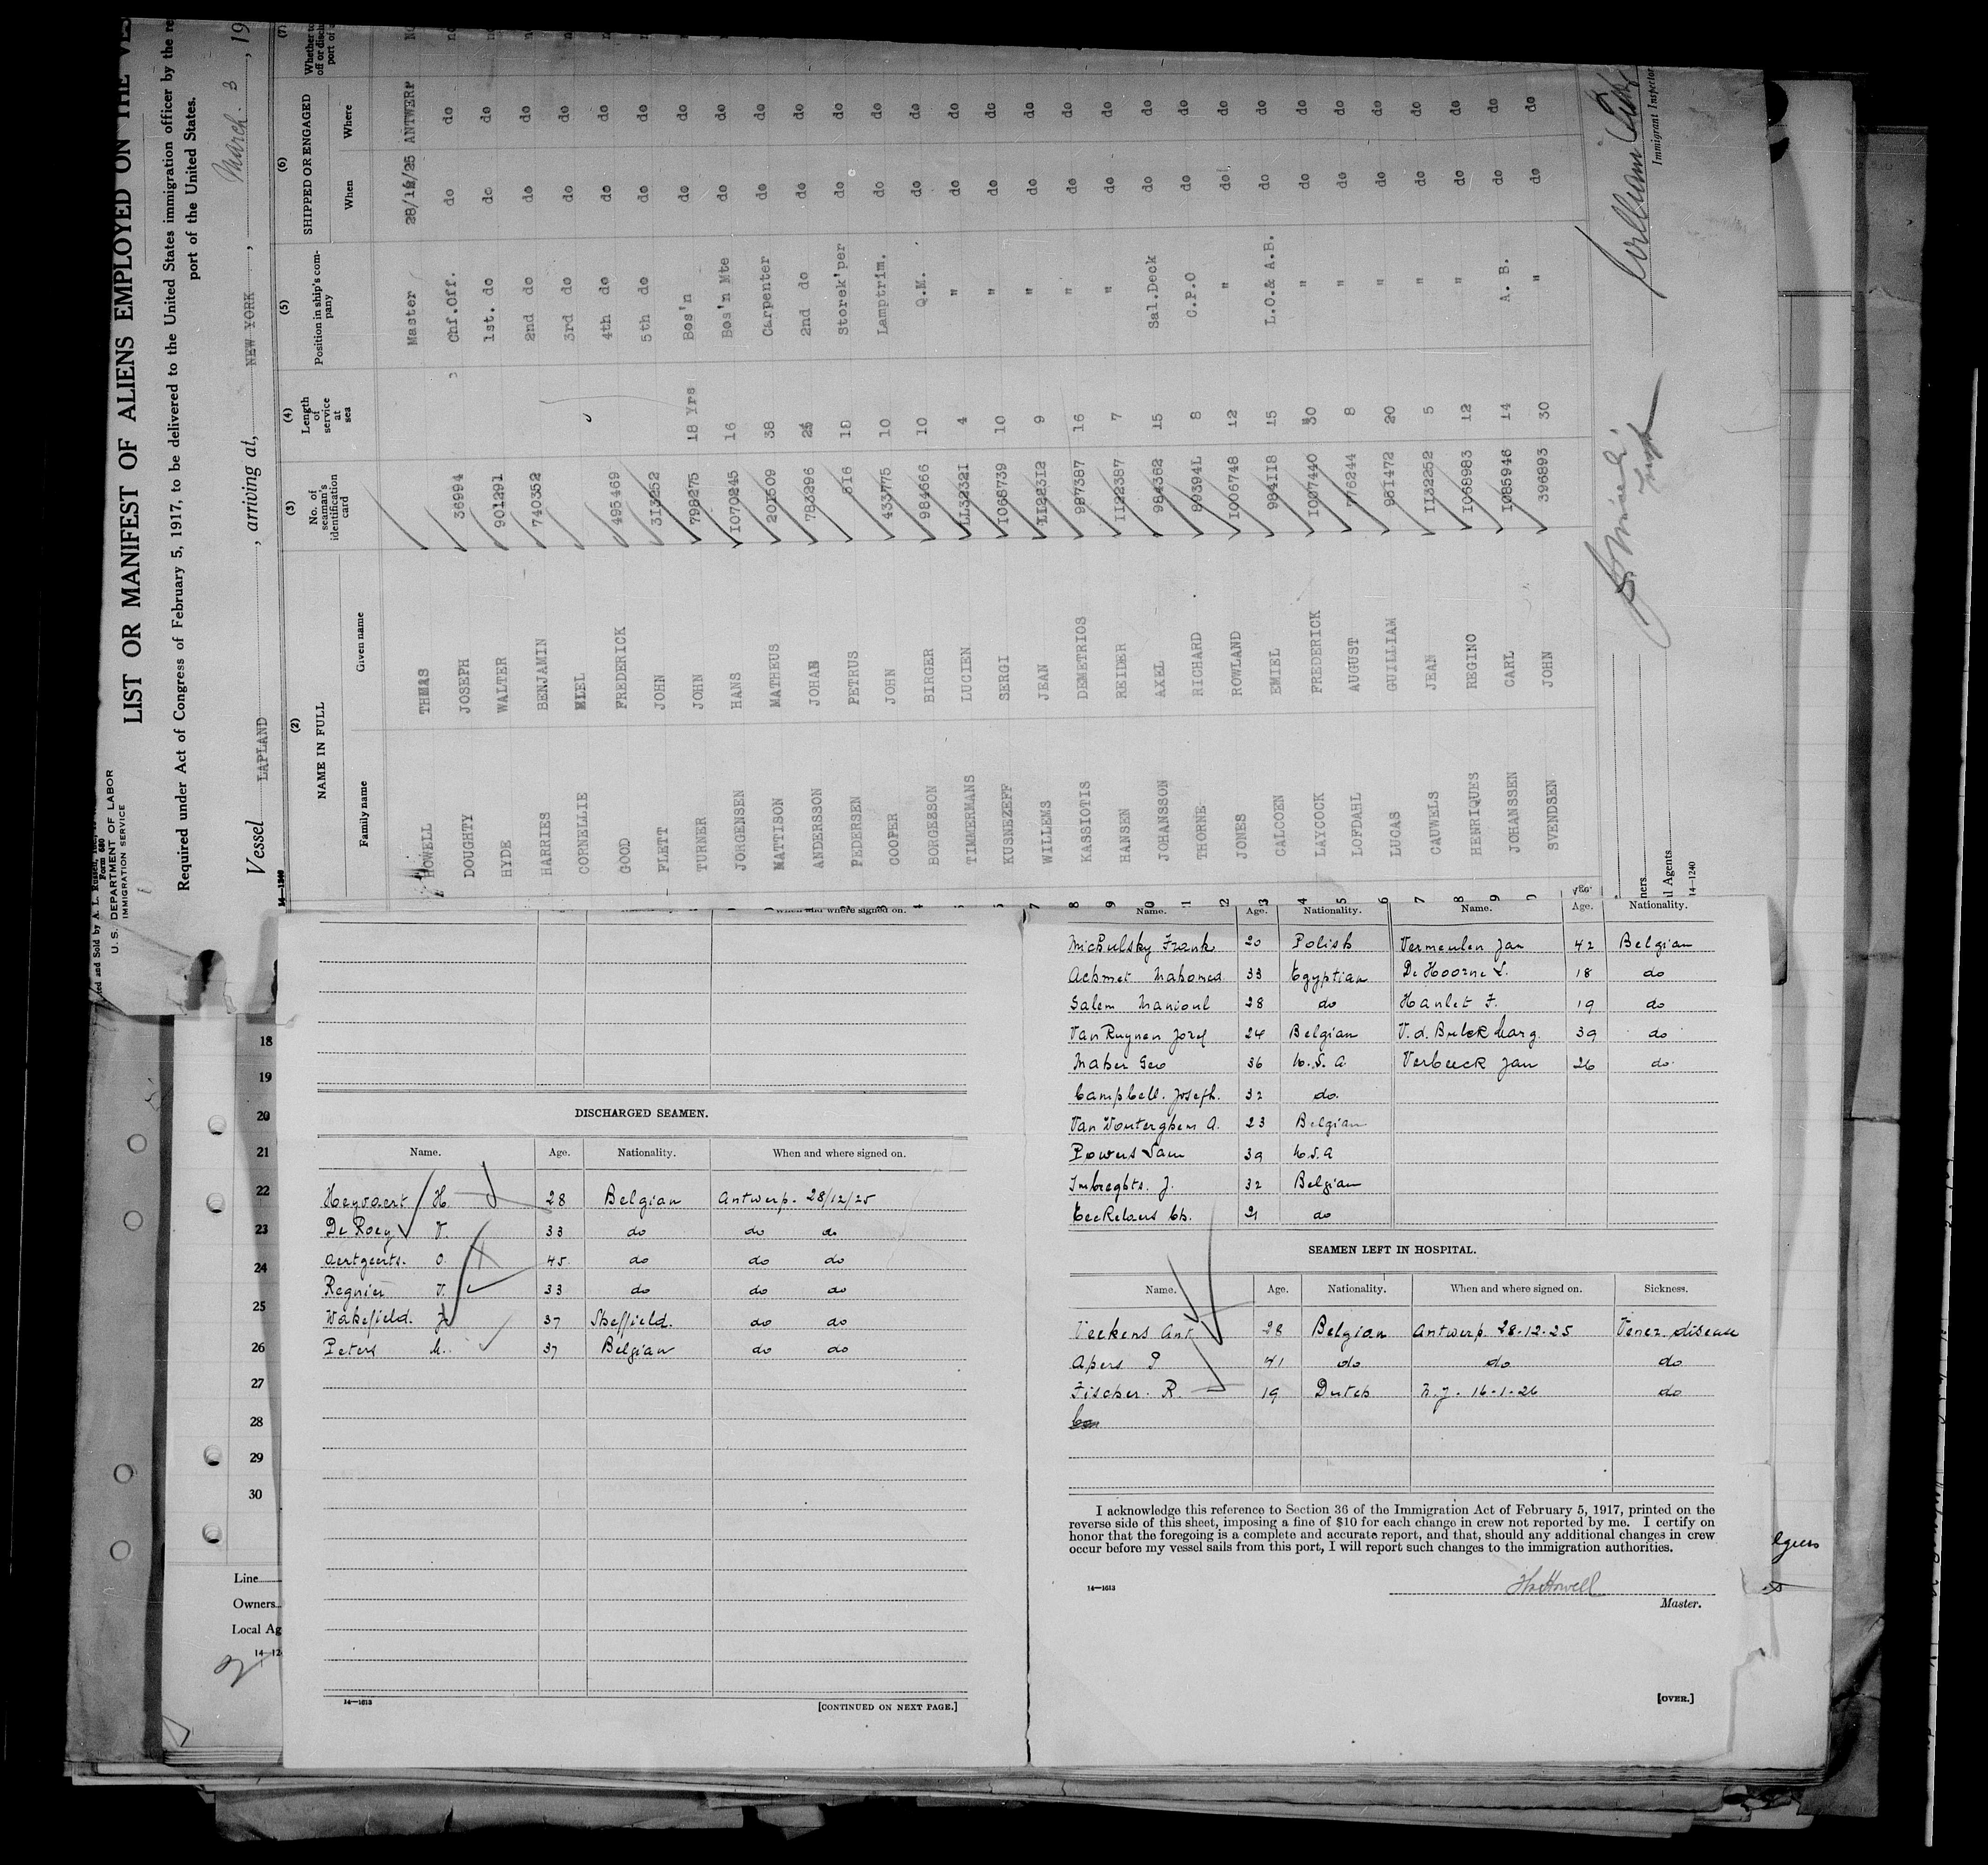 ted and Sold by A. L. Russell, Inc.,
Form 680
U. S. DEPARTMENT OF LABOR
IMMIGRATION SERVICE
LIST OR MANIFEST OF ALIENS EMPLOYED ON THE VES
Required under Act of Congress of February 5, 1917, to be delivered to the United States immigration officer by the re
port of the United States.
Vessel LAPLAND, arriving at, NEW YORK, March. 3, 19
14—1240
(2) (3) (4) (5) (6) (7)
NAME IN FULL No. of seaman's identification card Length of service at sea Position in ship's company SHIPPED OR ENGAGED
Family name Given name When Where
HOWELL THMAS Master 28/12/25 ANTWERP
DOUGHTY JOSEPH 36994 Chf.Off. do do
HYDE WALTER 901291 1st. do do do
HARRIES BENJAMIN 740352 2nd do do do
CORNELLIE 3rd do do do
GOOD FREDERICK 495469 4th do do do
FLETT JOHN 313252 5th do do do
TURNER JOHN 798275 18 Yrs Bos'n do do
JORGENSEN HANS 1070245 16 Bos'n Mte do do
MATTISON MATHEUS 201509 38 Carpenter do do
ANDERSSON JOHAN 783296 2nd do do do
PEDERSEN PETRUS 616 Storek'per do do
COOPER JOHN 433775 10 Lamptrim. do do
BORGESSON BIRGER 984666 10 Q.M. do do
TIMMERMANS LUCIEN 1132321 4 " do do
KUSNEZEFF SERGI 1068739 10 " do do
WILLEMS JEAN 1122312 9 " do do
KASSIOTIS DEMETRIOS 987387 16 " do do
HANSEN REIDER 1122387 7 " do do
JOHANSSON AXEL 984362 15 Sal.Deck do do
THORNE RICHARD 89394L 8 C.P.O do do
JONES ROWLAND 1006748 12 " do do
CALCOEN EMIEL 984118 15 L.O.& A.B. do do
LAYCOCK FREDERICK 1007440 30 " do do
LOFDAHL AUGUST 776244 8 " do do
LUCAS GUILLIAM 981472 20 " do do
CAUWELS JEAN 1132252 5 " do do
HENRIQUES REGINO 1068983 12 " do do
JOHANSSEN CARL 1085946 14 A. B. do do
SVENDSEN JOHN 396893 30 " do do
ners
l Agents
14—1240
Immigrant Inspector
18
19
20
21
22
23
24
25
26
27
28
29
30
Line
Owners
Local Ag
14—12
When and where signed on.
DISCHARGED SEAMEN.
Name. Age. Nationality. When and where signed on.
Heyvaert H. 28 Belgian Antwerp. 28/12/25
De Roey V. 33 do do do
Aertgeerts. O. 45 do do do
Regnier V. 33 do do do
Wakefield. J. 37 Sheffield. do do
Peters M. 37 Belgian do do
14—1613
[CONTINUED ON NEXT PAGE.]
Name. Age. Nationality. Name. Age. Nationality.
Frank 20 Polish Vermeulen Jan 42 Belgian
Achmet Mahomed 33 Egyptian De Hoorne L. 18 do
Salem 28 do Hanlet F. 19 do
Van Ruynen Josef 24 Belgian V. d. Bulck Marg. 39 do
Maher Geo 36 U. S. A Verbeeck Jan 26 do
Campbell. Joseph. 32 do.
Van Wouterghem A. 23 Belgian
Powers Sam 39 U.S.A
Imbreghts. J. 32 Belgian
Eeckelaers Ch. 21 do
SEAMEN LEFT IN HOSPITAL.
Name. Age. Nationality. When and where signed on. Sickness.
Veekens Ant 28 Belgian Antwerp 28-12-25 Vener. disease
Apers P 41 do do do
Fischer. R. 19 Dutch N.Y. 16-1-26 do
I acknowledge this reference to Section 36 of the Immigration Act of February 5, 1917, printed on the
reverse side of this sheet, imposing a fine of $10 for each change in crew not reported by me. I certify on
honor that the foregoing is a complete and accurate report, and that, should any additional changes in crew
occur before my vessel sails from this port, I will report such changes to the immigration authorities.
14—1613
Howell
Master.
[OVER.]